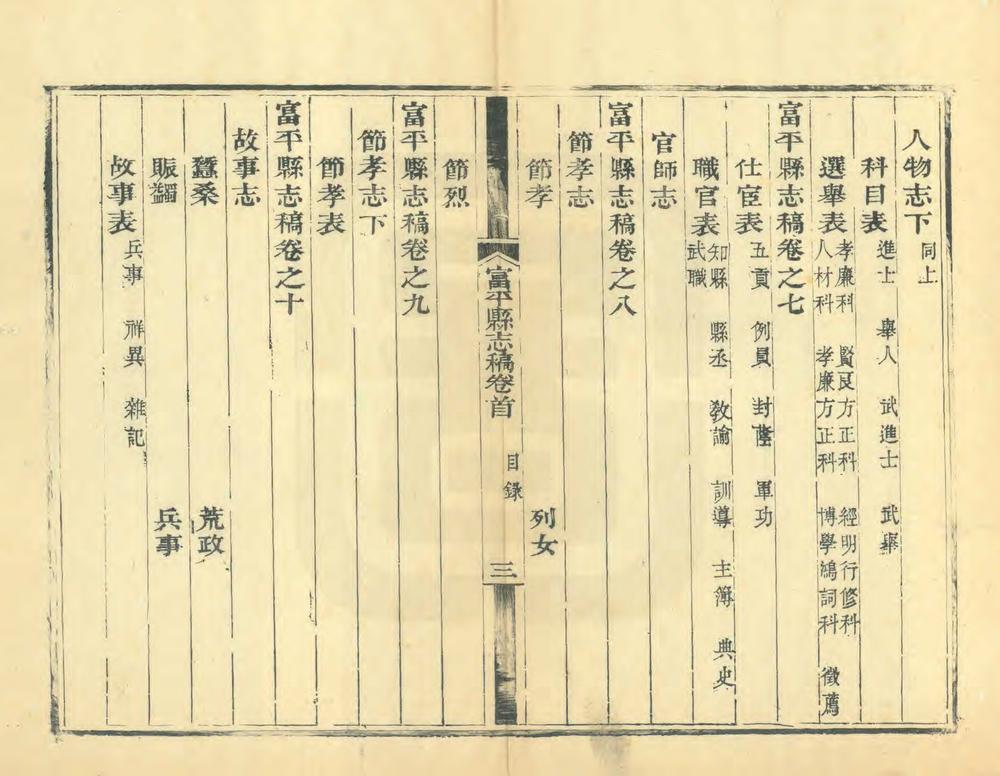 人物志下 同上
科目表 進士 舉人 武進士 武舉
選舉表 孝廉科 賢良方正科 經明行修科
人材科 孝廉方正科 博學鴻詞科 徵薦
富平縣志稿卷之七
仕宦表 五貢 例員 封蔭 軍功
職官表 知縣 縣丞 教諭 訓導 主簿 典史
武職
官師志
富平縣志稿卷之八
節孝志
節孝 列女
富平縣志稿卷首 目錄 三
節烈
富平縣志稿卷之九
節孝志下
節孝表
富平縣志稿卷之十
故事志
蠶桑 荒政
賑蠲 兵事
故事表 兵事 祥異 雜記